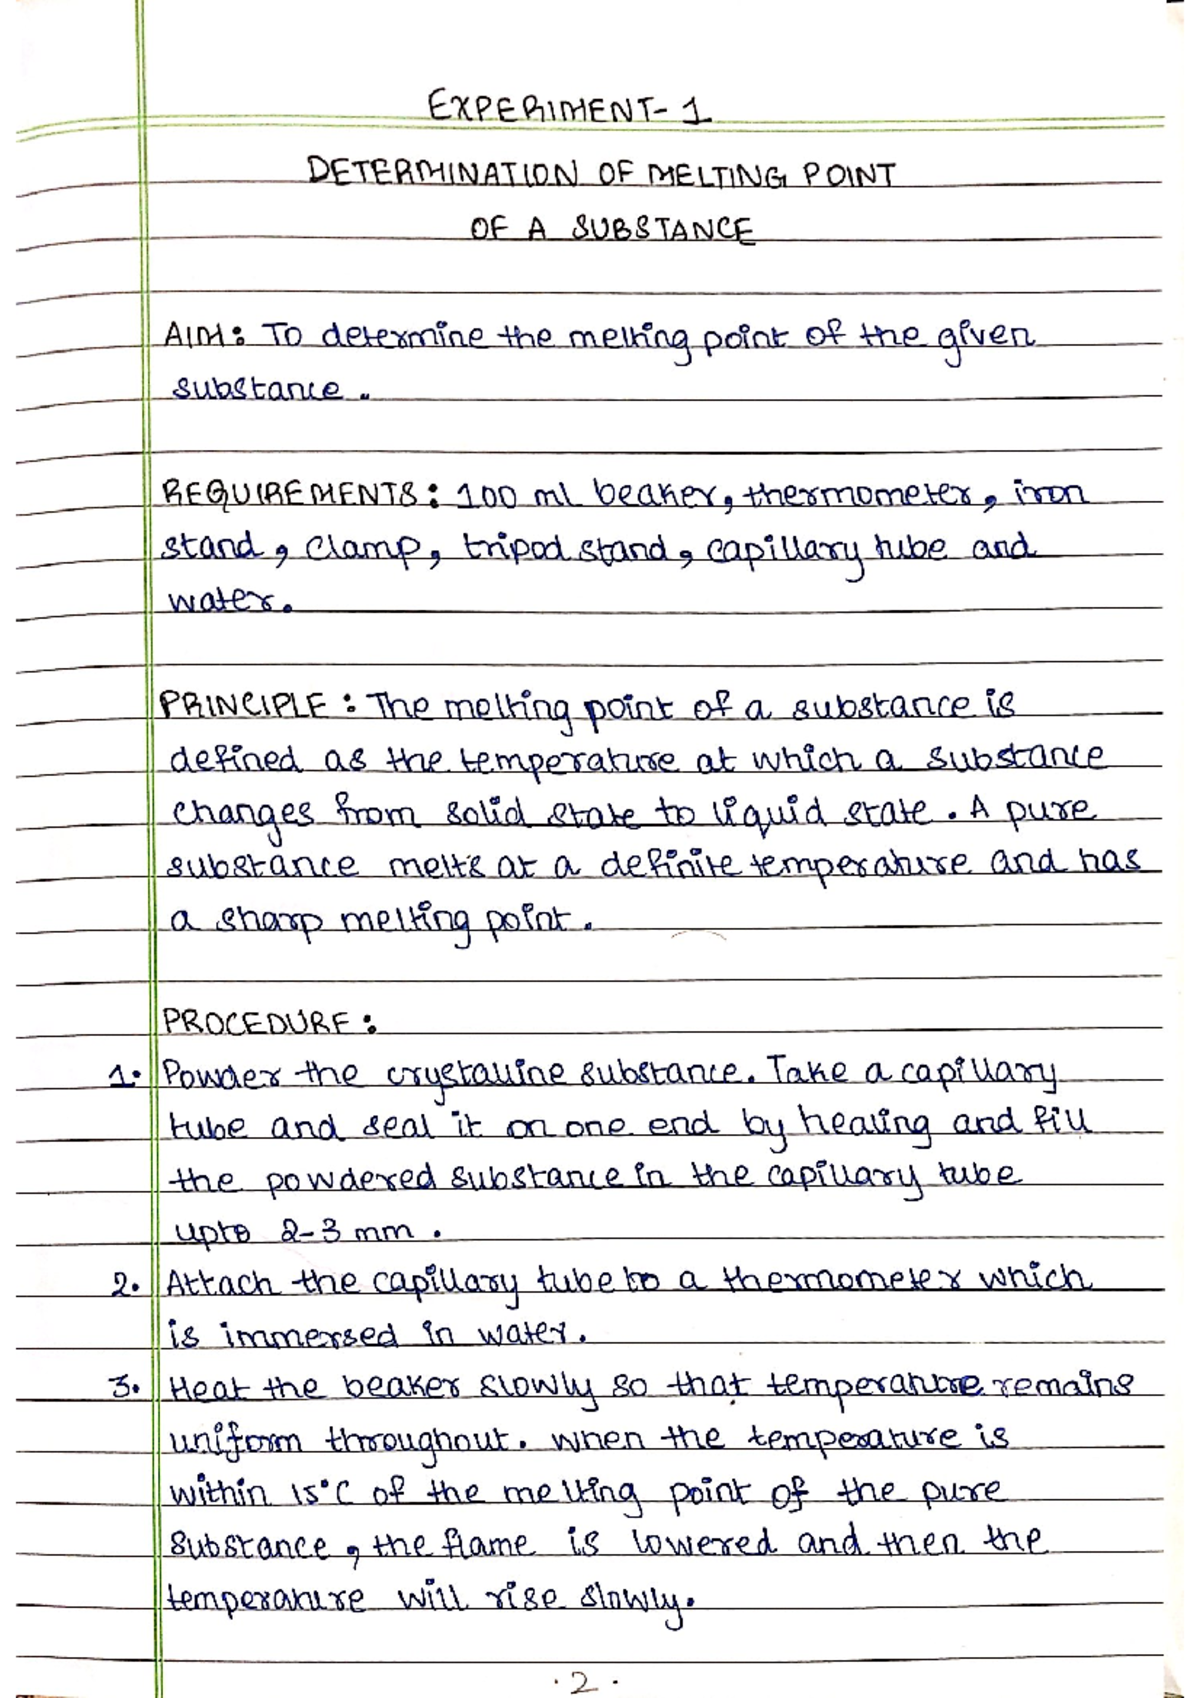 EXPERIMENT-1
DETERMINATION OF MELTING POINT
OF A SUBSTANCE
AIM: To determine the melting point of the given
substance.
REQUIREMENTS: 100 ml beaker, thermometer, iron
stand, clamp, tripod stand, capillary tube and
water.
PRINCIPLE: The melting point of a substance is
defined as the temperature at which a substance
changes from solid state to liquid state. A pure
substance melts at a definite temperature and has
a sharp melting point.
PROCEDURE:
1. Powder the crystalline substance. Take a capillary
tube and seal it on one end by heating and fill
the powdered substance in the capillary tube
upto 2-3 mm.
2. Attach the capillary tube to a thermometer which
is immersed in water.
3. Heat the beaker slowly so that temperature remains
uniform throughout. When the temperature is
within 15°C of the melting point of the pure
substance, the flame is lowered and then the
temperature will rise slowly.
.2.